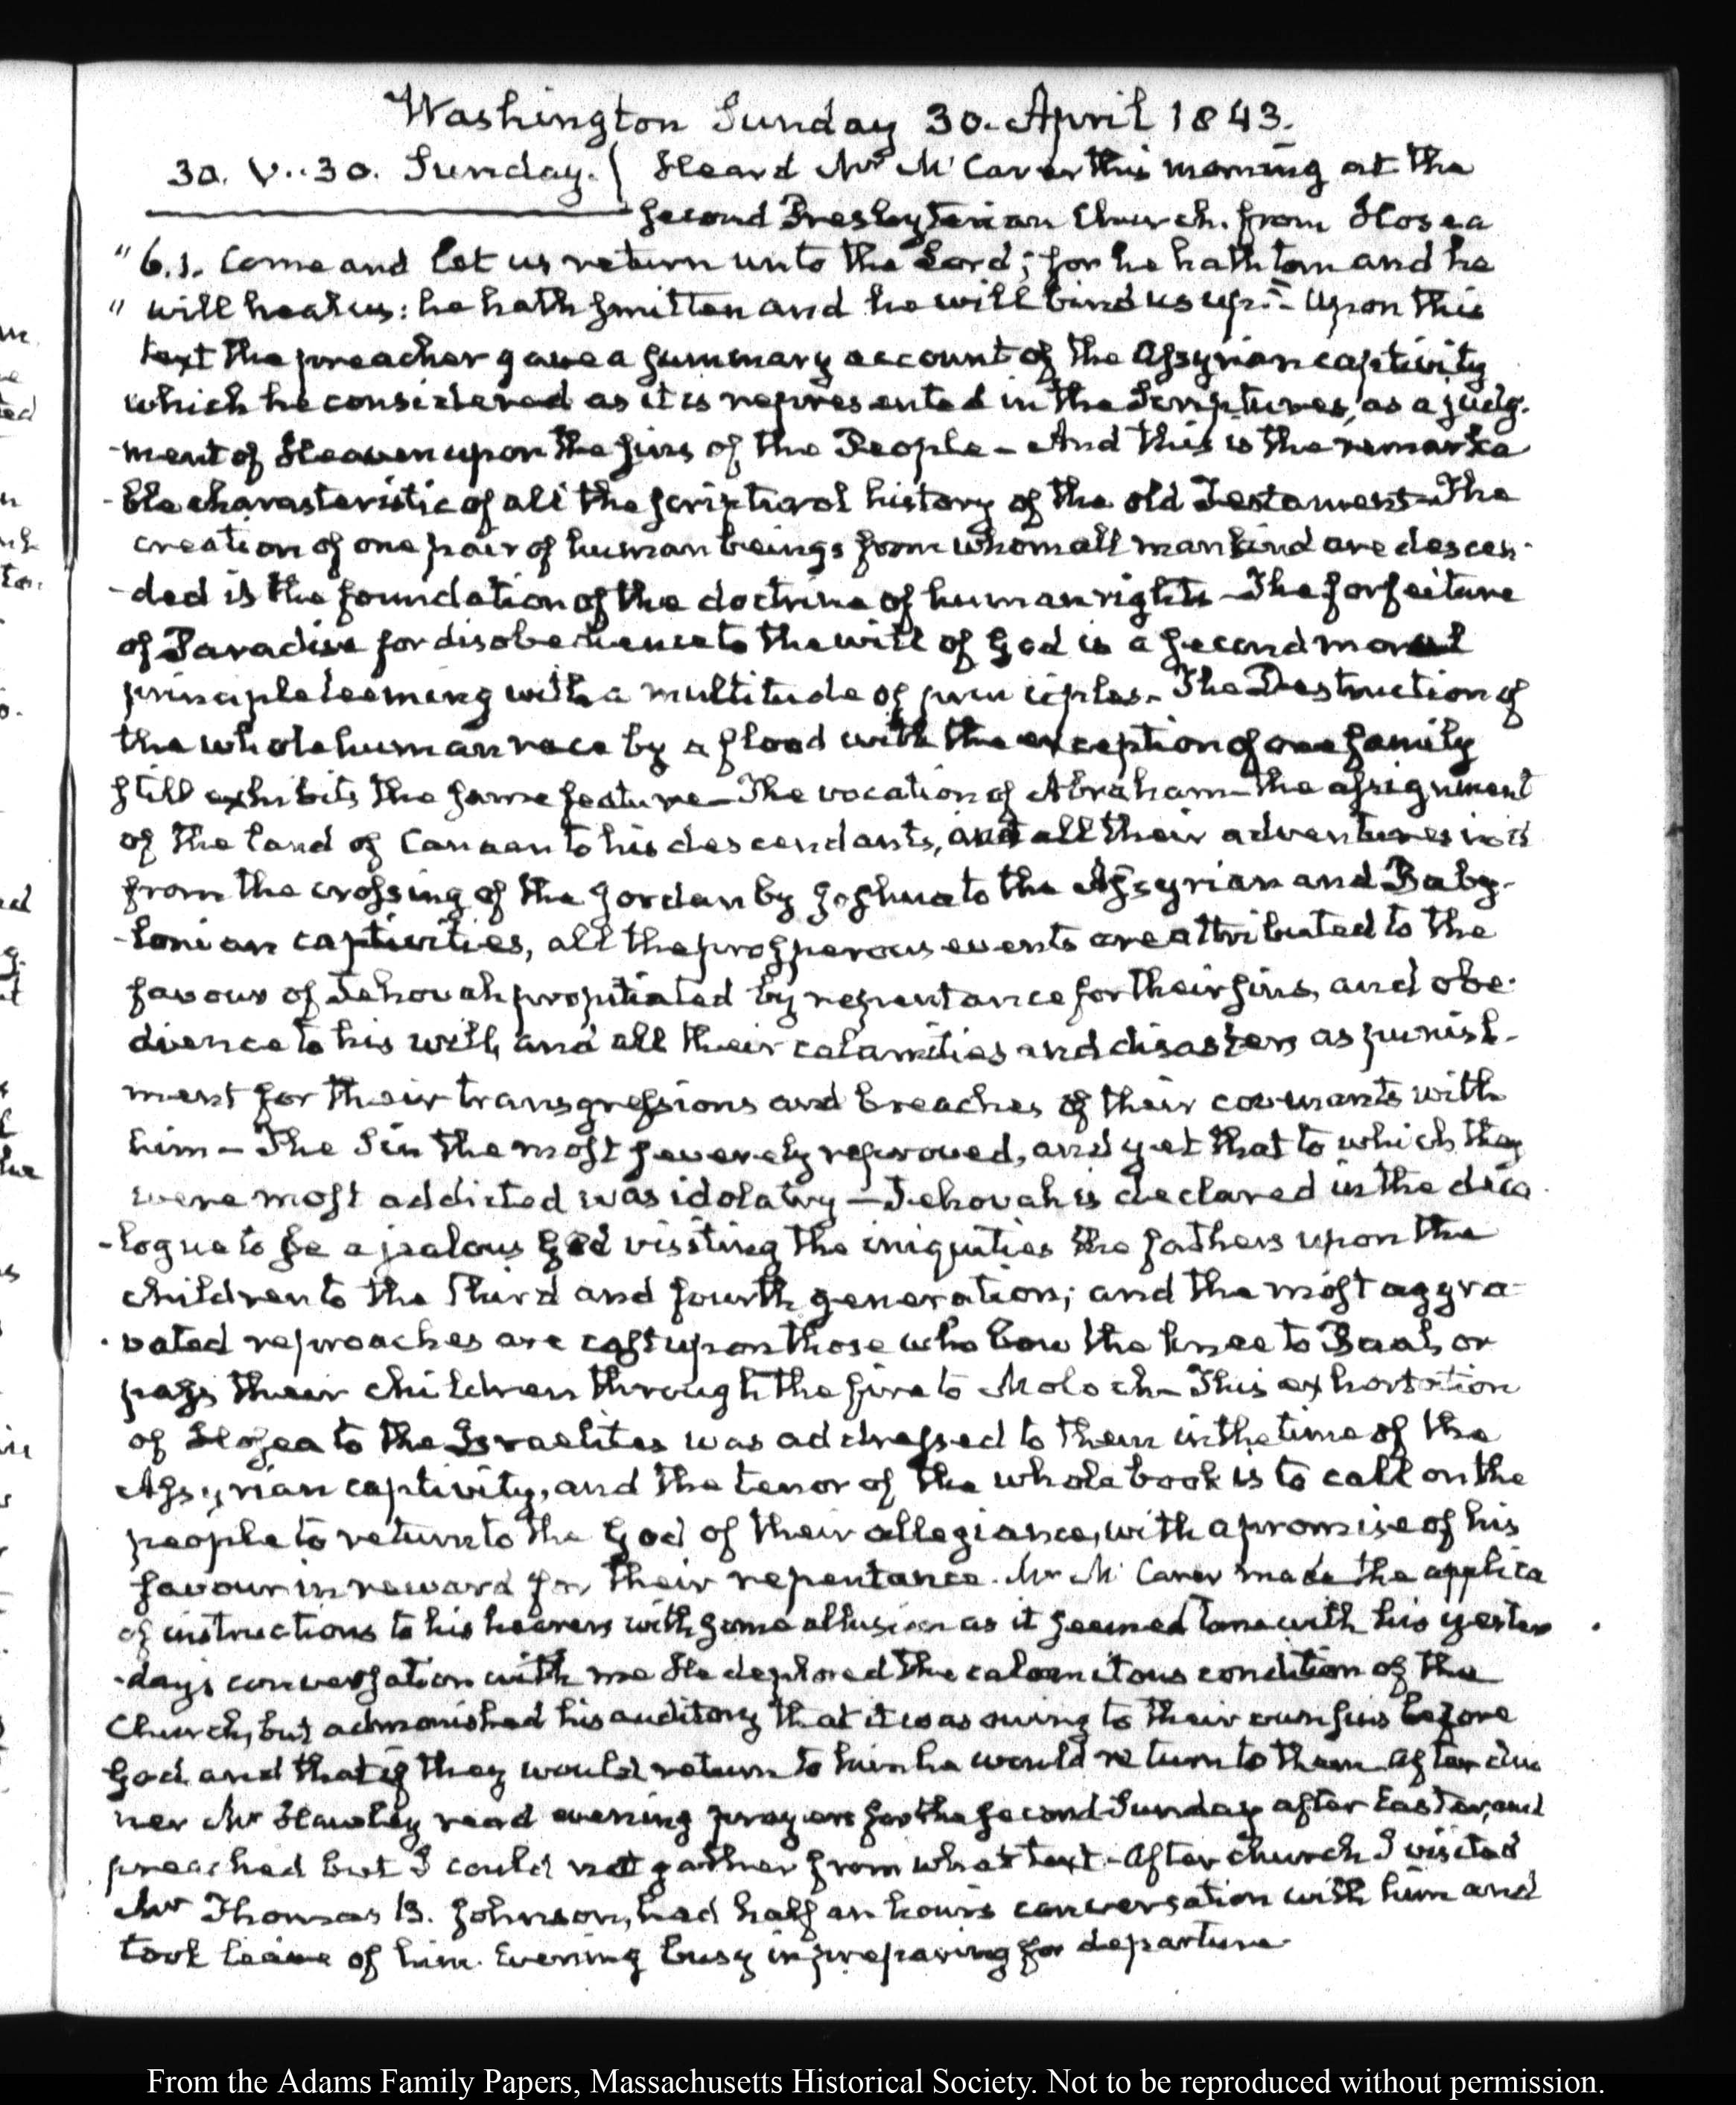 Washington Sunday 30. April 1843.
30. V..30. Sunday. { Heard Mr McCarver this morning at the
Second Presbyterian Church. from Hosea
" 6.1. Come and let us return unto the Lord; for he hath torn and he
" will heal us: he hath smitten and he will bind us up." Upon this
text the preacher gave a summary account of the Assyrian captivity
which he considered as it is represented in the Scriptures, as a judg-
-ment of Heaven upon the sins of the People - And this is the remarka
-ble characteristic of all the scriptural history of the old Testament - The
creation of one pair of human beings from whom all mankind are descen-
-ded is the foundation of the doctrine of human rights - The forfeiture
of Paradise for disobedience to the will of God is a second moral
principle teeming with a multitude of principles. The Destruction of
the whole human race by a flood with the exception of one family
still exhibits the same feature - The vocation of Abraham - the assignment
of the land of Canaan to his descendants, and all their adventures in it
from the crossing of the Jordan by Joshua to the Assyrian and Baby-
-lonian captivities, all the prosperous events are attributed to the
favour of Jehovah propitiated by repentance for their sins, and obe-
dience to his will, and all their calamities and disasters as punish-
ment for their transgressions and breaches of their covenants with
him - The Sin the most severely reproved, and yet that to which they
were most addicted was idolatry - Jehovah is declared in the deca
-logue to be a jealous God visiting the iniquities the fathers upon the
children to the third and fourth generation; and the most aggra-
-vated reproaches are cast upon those who bow the knee to Baal, or
pass their children through the fire to Moloch - This exhortation
of Hosea to the Israelites was addressed to them in the time of the
Assyrian captivity, and the tenor of the whole book is to call on the
people to return to the God of their allegiance, with a promise of his
favour in reward for their repentance. Mr McCarver made the applica
of instructions to his hearers with some allusion as it seemed to me with his yester
-day's conversation with me He deplored the calamitous condition of the
Church, but admonished his auditory that it was owing to their own sins before
God and that if they would return to him he would return to them. After din
ner Mr Hawley read evening prayers for the second Sunday after Easter, and
preached but I could not gather from what text - After church I visited
Mr Thomas B. Johnson, had half an hour's conversation with him and
took leave of him. Evening busy in preparing for departure.
From the Adams Family Papers, Massachusetts Historical Society. Not to be reproduced without permission.